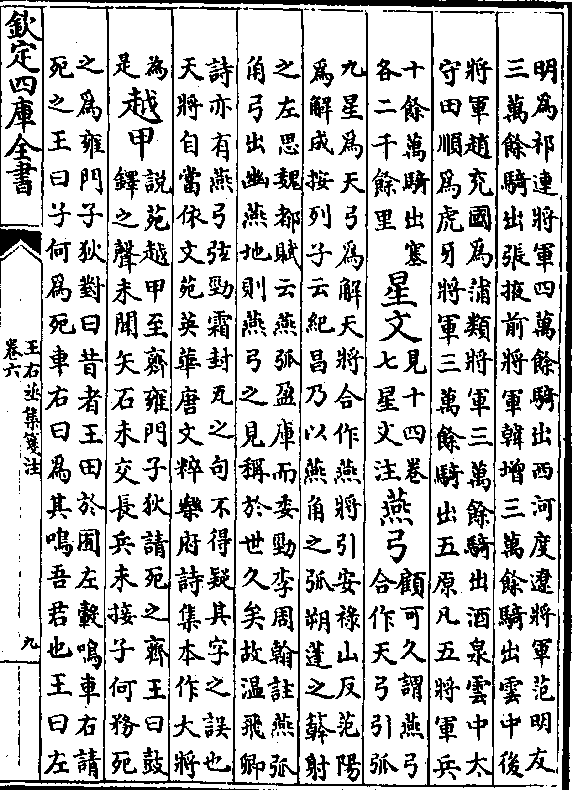 明為祁連將軍四萬餘騎出西河度遼將軍范明友
三萬餘騎出張掖前將軍韓增三萬餘騎出雲中後
將軍趙充國為蒲類將軍三萬餘騎出酒泉雲中太
守田順為虎牙將軍三萬餘騎出五原凡五將軍兵
十餘萬騎出塞
各二千餘里
星文
見十四卷
七星文注
燕弓
顧可久謂燕弓
合作天弓引弧
九星為天弓為解天將合作燕將引安祿山反范陽
為解成按列子云紀昌乃以燕角之弧朔蓬之簳射
之左思魏都賦云燕弧盈庫而委勁李周翰註燕弧
角弓出幽燕地則燕弓之見稱於世久矣故温飛卿
詩亦有燕弓弦勁霜封瓦之句不得疑其字之誤也
天將自當依文苑英華唐文粹樂府詩集本作大將
為
是
越甲
說苑越甲至齊雍門子狄請死之齊王曰鼓
鐸之聲未聞矢石未交長兵未接子何務死
之為雍門子狄對曰昔者王田於囿左轂鳴車右請
死之王曰子何為死車右曰為其鳴吾君也王曰左
欽定四庫全書
王右丞集箋注
卷六
九